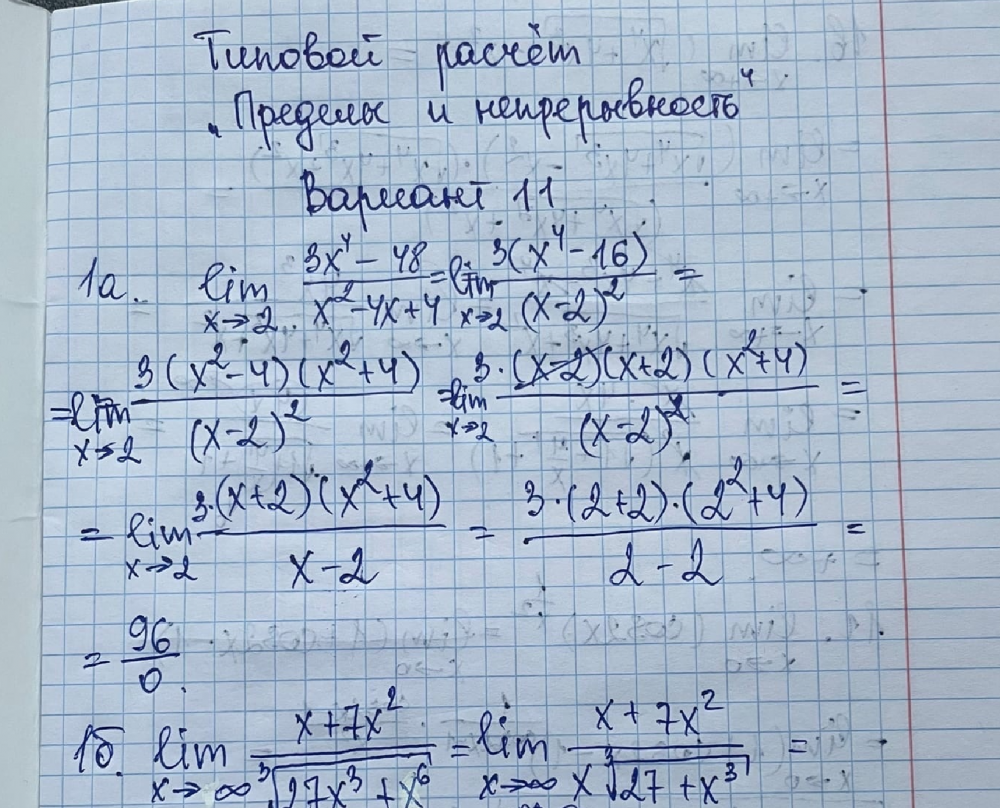 Типовой расчёт
„Пределы и непрерывность"
Вариант 11
1а. lim x→2 (3x⁴ − 48)/(x² − 4x + 4) = lim x→2 3(x⁴ − 16)/(x − 2)² =
= lim x→2 3(x² − 4)(x² + 4)/(x − 2)² = lim x→2 3·(x − 2)(x + 2)(x² + 4)/(x − 2)² =
= lim x→2 3·(x + 2)(x² + 4)/(x − 2) = 3·(2 + 2)·(2² + 4)/(2 − 2) =
= 96/0.
1б. lim x→∞ (x + 7x²)/∛(27x³ + x⁶) = lim x→∞ (x + 7x²)/(x∛(27 + x³)) =